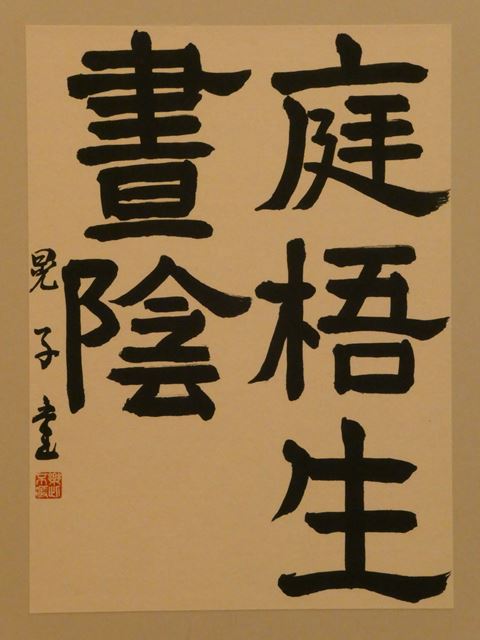 庭梧生
晝陰
晃子書